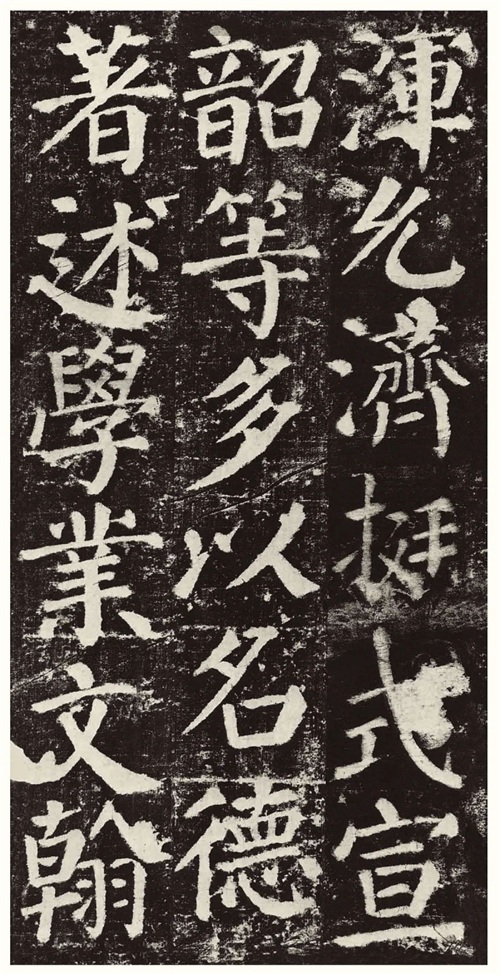 渾允濟挺式宣
韶等多以名德
著述學業文翰